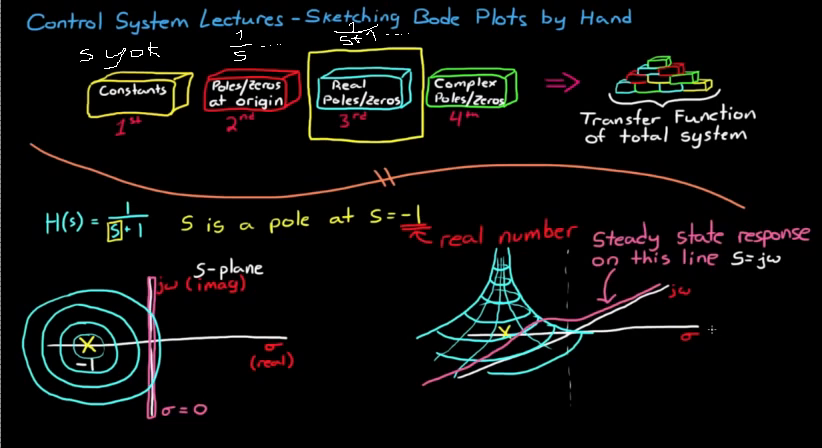 Control System Lectures - Sketching Bode Plots by Hand
s yok
1/s ....
Constants
Poles/Zeros
at origin
Real
Poles/Zeros
Complex
Poles/Zeros
=>
1st
2nd
3rd
4th
Transfer Function
of total system
H(s) = 1/(s+1)
S is a pole at S = -1
real number
Steady state response
on this line S=jω
S-plane
jω (imag)
-1
σ
(real)
σ = 0
jω
σ